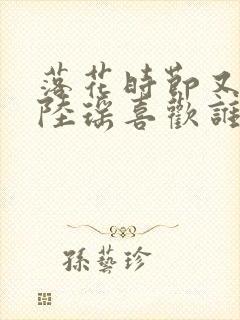 落花時節又
陸瑶喜歡誰
孫藝珍